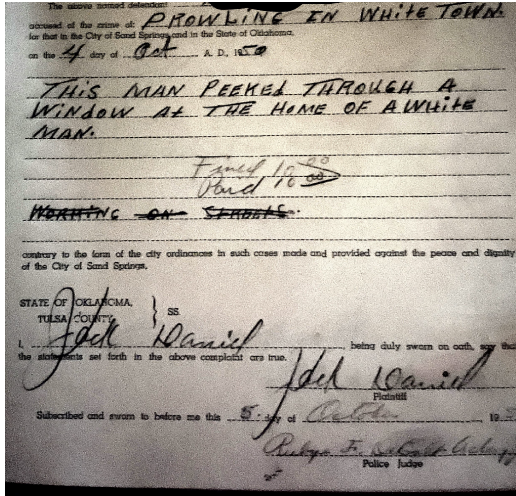 The above named defendant
accused of the crime of: PROWLING IN WHITE TOWN.
for that in the City of Sand Springs, and in the State of Oklahoma,
on the 4 day of Oct A. D., 1950
THIS MAN PEEKED THROUGH A
WINDOW AT THE HOME OF A WHITE
MAN.
Fined 18.00
Paid 18.00
WORKING ON STREETS.
contrary to the form of the city ordinances in such cases made and provided against the peace and dignity
of the City of Sand Springs.
STATE OF OKLAHOMA,
TULSA COUNTY SS.
I, Jack Daniel, being duly sworn on oath, say tha
the statements set forth in the above complaint are true.
Jack Daniel
Plaintiff
Subscribed and sworn to before me this 5 day of October 19
Police Judge